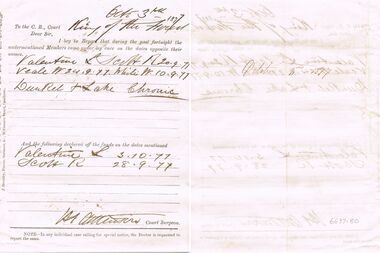 Oct 3rd 1877
To the C. R., Court King of the Forest
Dear Sir,
I beg to Report that during the past fortnight the
undermentioned Members came under my care on the dates opposite
their names.
Valentine L Scott R 20-9-77
Veale W 24.9.77 White W 10.9.77
Dunkel & Lake Chronic
And the following declared off the funds on the dates mentioned
Valentine L 3-10-77
Scott R 28-9-77
Court Surgeon.
NOTE.—In any individual case calling for special notice, the Doctor is requested to
report the same.
October 3 77
6637.80